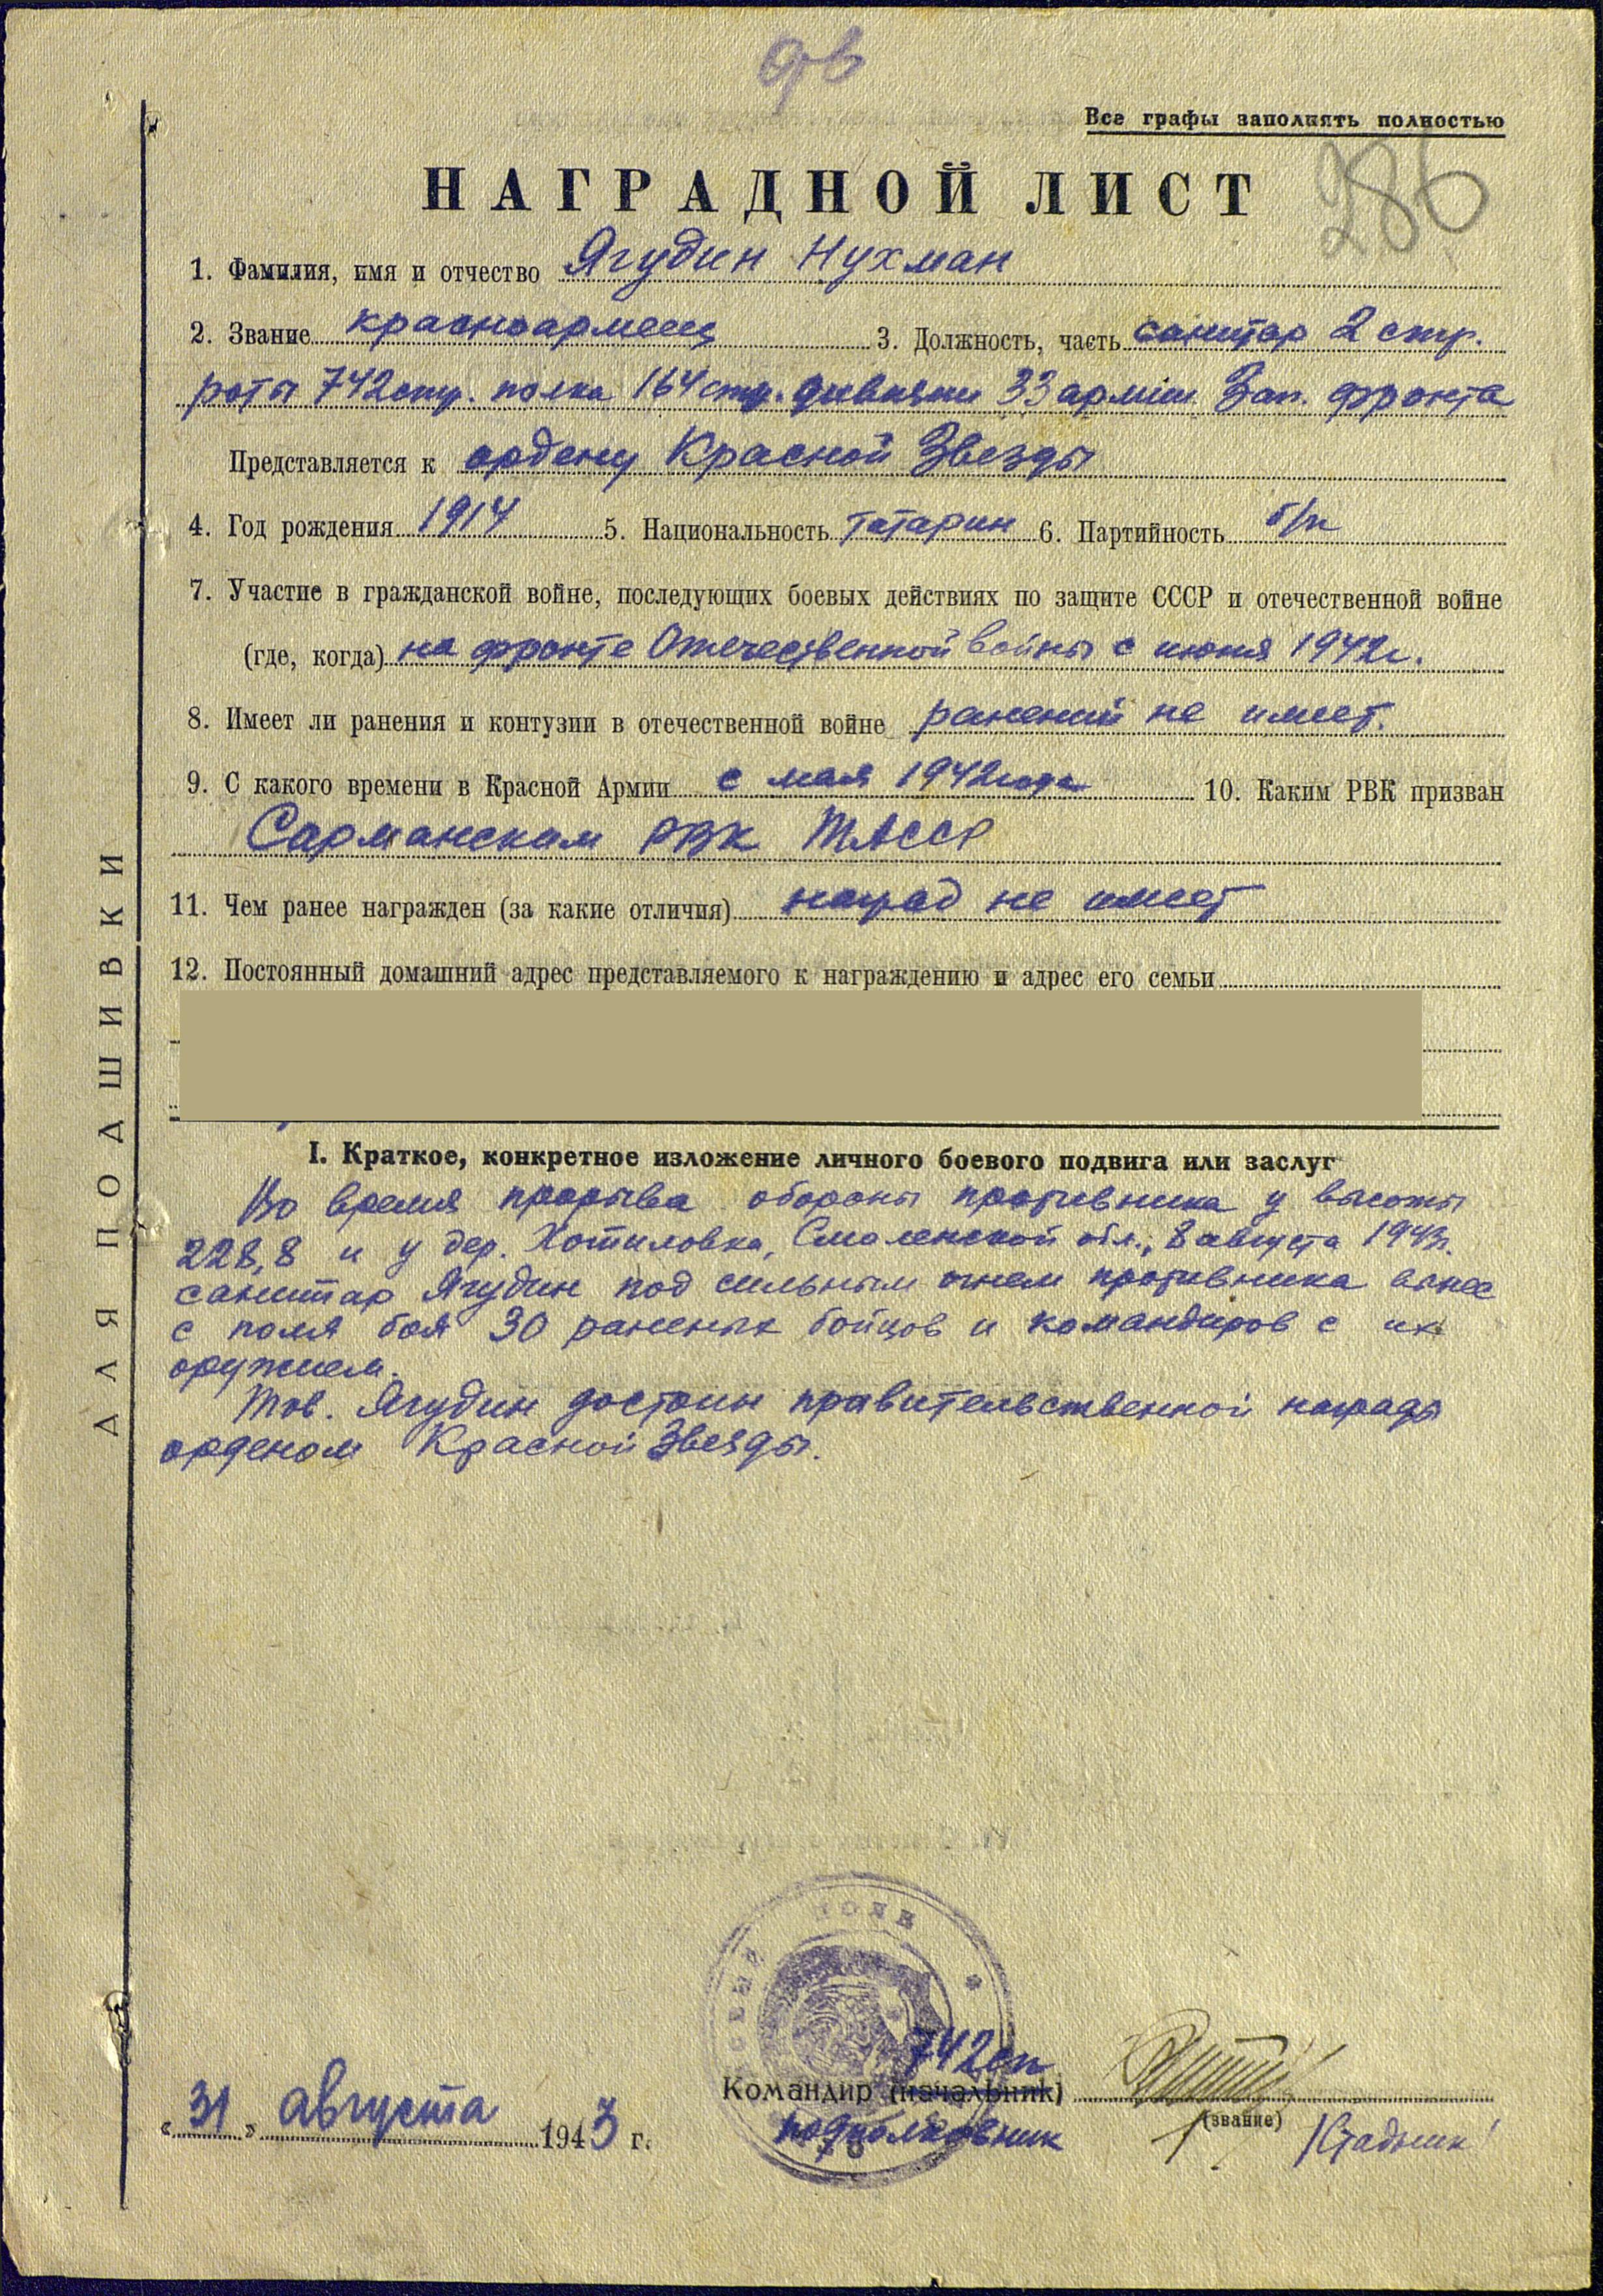 Все графы заполнять полностью
286
НАГРАДНОЙ ЛИСТ
1. Фамилия, имя и отчество Ягудин Нухман
2. Звание красноармеец 3. Должность, часть санитар 2 стр.
роты 742 стр. полка 164 стр. дивизии 33 армии Зап. фронта
Представляется к ордену Красной Звезды
4. Год рождения 1914 5. Национальность татарин 6. Партийность б/п
7. Участие в гражданской войне, последующих боевых действиях по защите СССР и отечественной войне
(где, когда) на фронте Отечественной войны с июня 1942 г.
8. Имеет ли ранения и контузии в отечественной войне ранений не имеет.
9. С какого времени в Красной Армии с мая 1942 года 10. Каким РВК призван
Сарманским РВК ТАССР
11. Чем ранее награжден (за какие отличия) наград не имеет
12. Постоянный домашний адрес представляемого к награждению и адрес его семьи
I. Краткое, конкретное изложение личного боевого подвига или заслуг
Во время прорыва обороны противника у высоты
228,8 и у дер. Хотиловка, Смоленской обл., 8 августа 1943г.
санитар Ягудин под сильным огнем противника вынес
с поля боя 30 раненых бойцов и командиров с их
оружием.
Тов. Ягудин достоин правительственной награды
орденом Красной Звезды.
ДЛЯ ПОДШИВКИ
ПОЛК
742 сп
Командир (начальник)
(звание)
подполковник /Стадник/
«31» августа 1943 г.